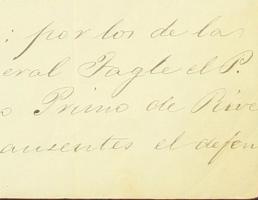 : por los de la
eral Tagle el P.
o Primo de Rive
ausentes el defen